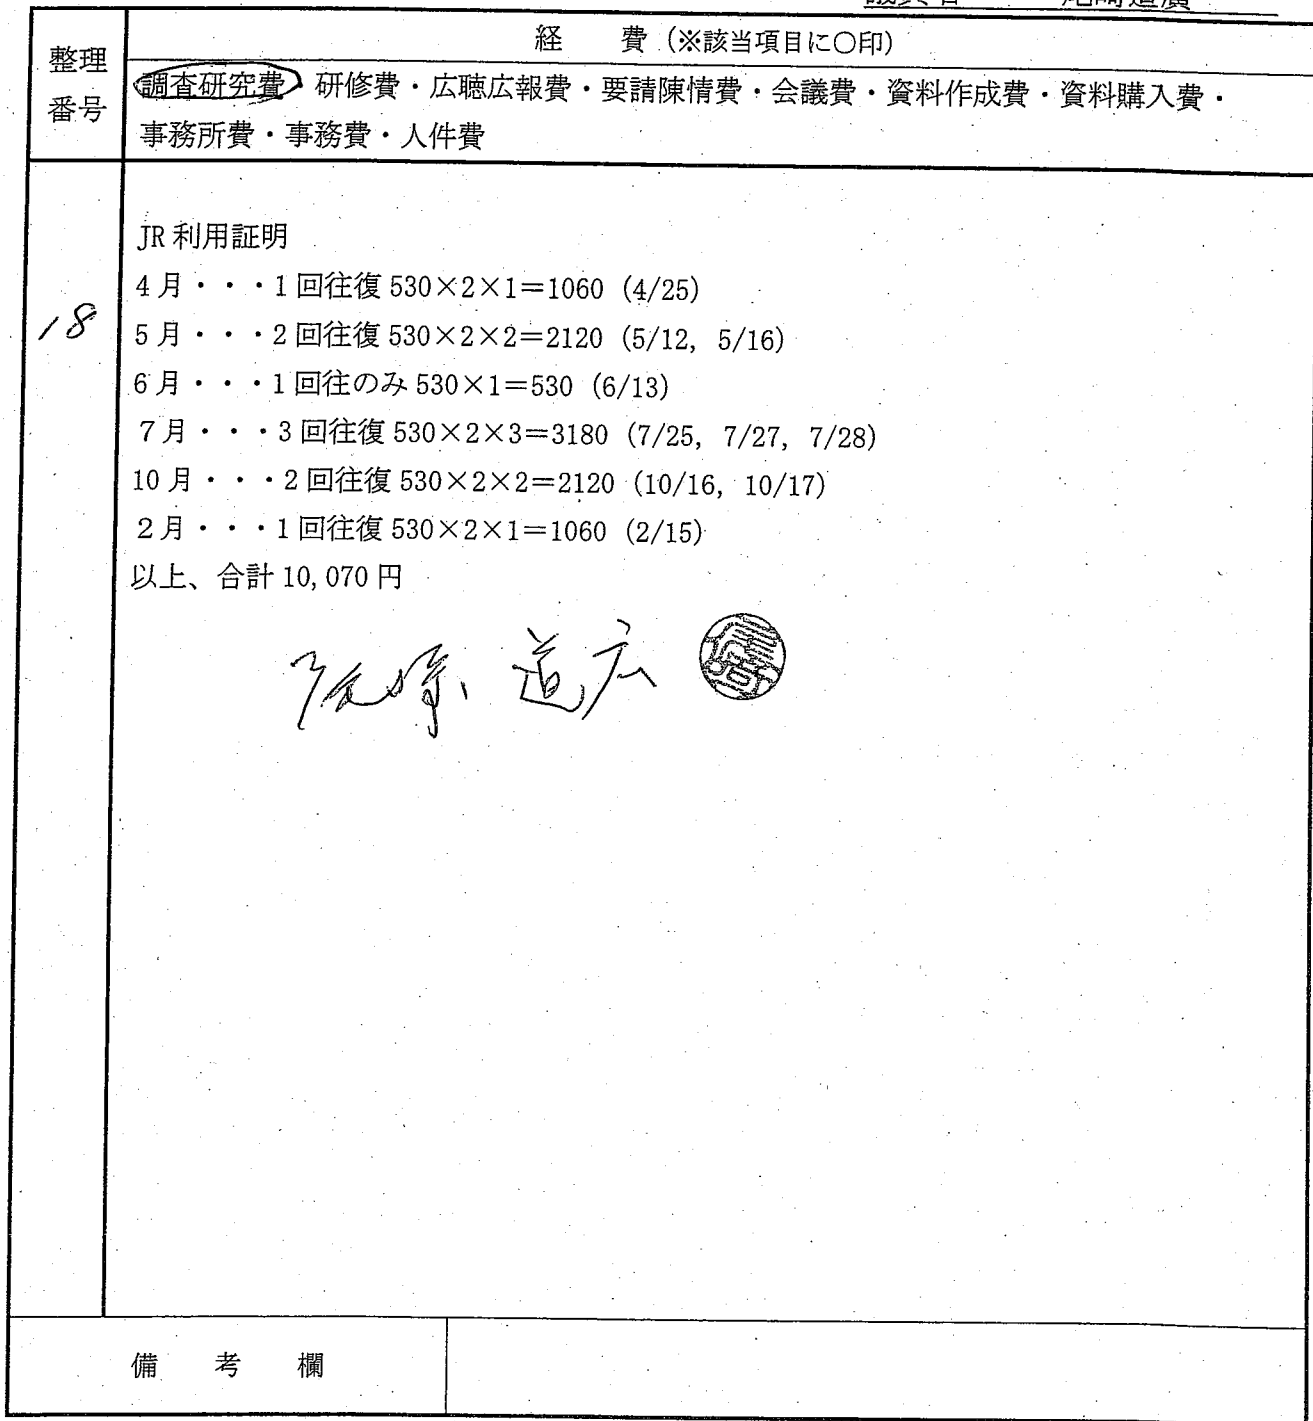 整理番号
経　費（※該当項目に〇印）
調査研究費・研修費・広聴広報費・要請陳情費・会議費・資料作成費・資料購入費・
事務所費・事務費・人件費
18
JR利用証明
4月・・・1回往復530×2×1＝1060（4/25）
5月・・・2回往復530×2×2＝2120（5/12, 5/16）
6月・・・1回往のみ530×1＝530（6/13）
7月・・・3回往復530×2×3＝3180（7/25, 7/27, 7/28）
10月・・・2回往復530×2×2＝2120（10/16, 10/17）
2月・・・1回往復530×2×1＝1060（2/15）
以上、合計10,070円
道広
備　考　欄